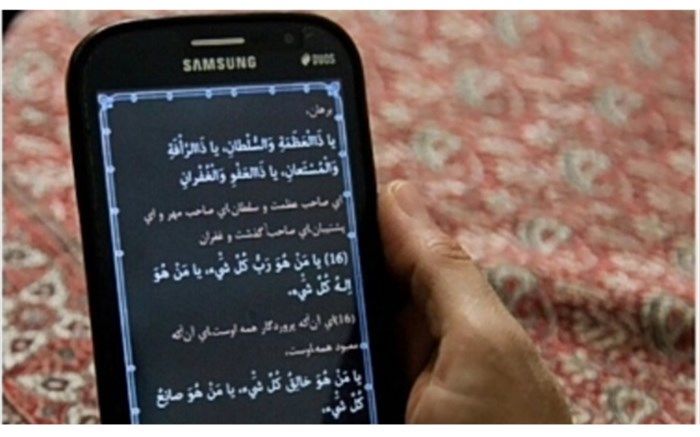 SAMSUNG
DUOS
برهان،
يا ذَاالْعَظَمَةِ وَالسُّلْطانِ، يا ذَاالرَّأْفَةِ
وَالْمُسْتَعانِ، يا ذَاالعَفْوِ وَالْغُفْرانِ
اي صاحب عظمت و سلطان،اي صاحب مهر و اي
پشتيبان،اي صاحب گذشت و غفران
(16) يا مَنْ هُوَ رَبُّ كُلِّ شَّيْء، يا مَنْ هُوَ
اِلـهُ كُلِّ شَّيْء،
(16)اي آن‌كه پروردگار همه اوست،اي آن‌كه
معبود همه‌اوست،
يا مَنْ هُوَ خالِقُ كُلِّ شَّيْء، يا مَنْ هُوَ صانِعُ
كُلِّ شَّيْء،